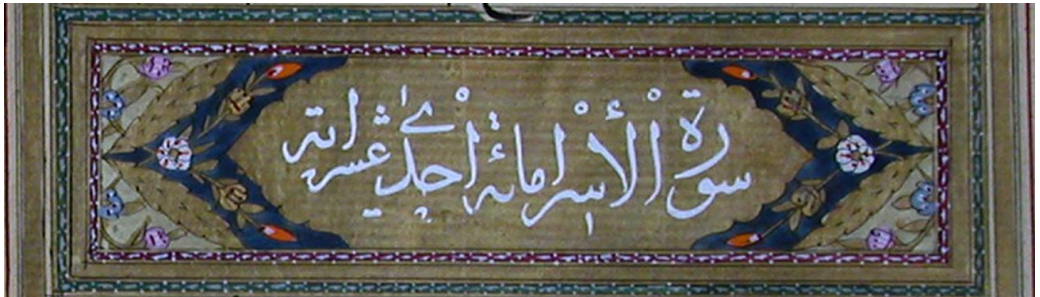 سورة الْأسْرا مائة احْدىٰ عشر اية